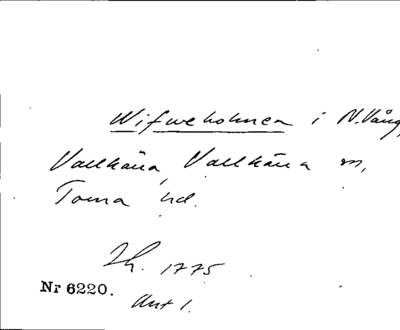 Wifweholmen i N.Vång,
Vallkärra, Vallkärra sn,
Torna hd.
Sk. 1775
Nr 6220.
Akt 1.